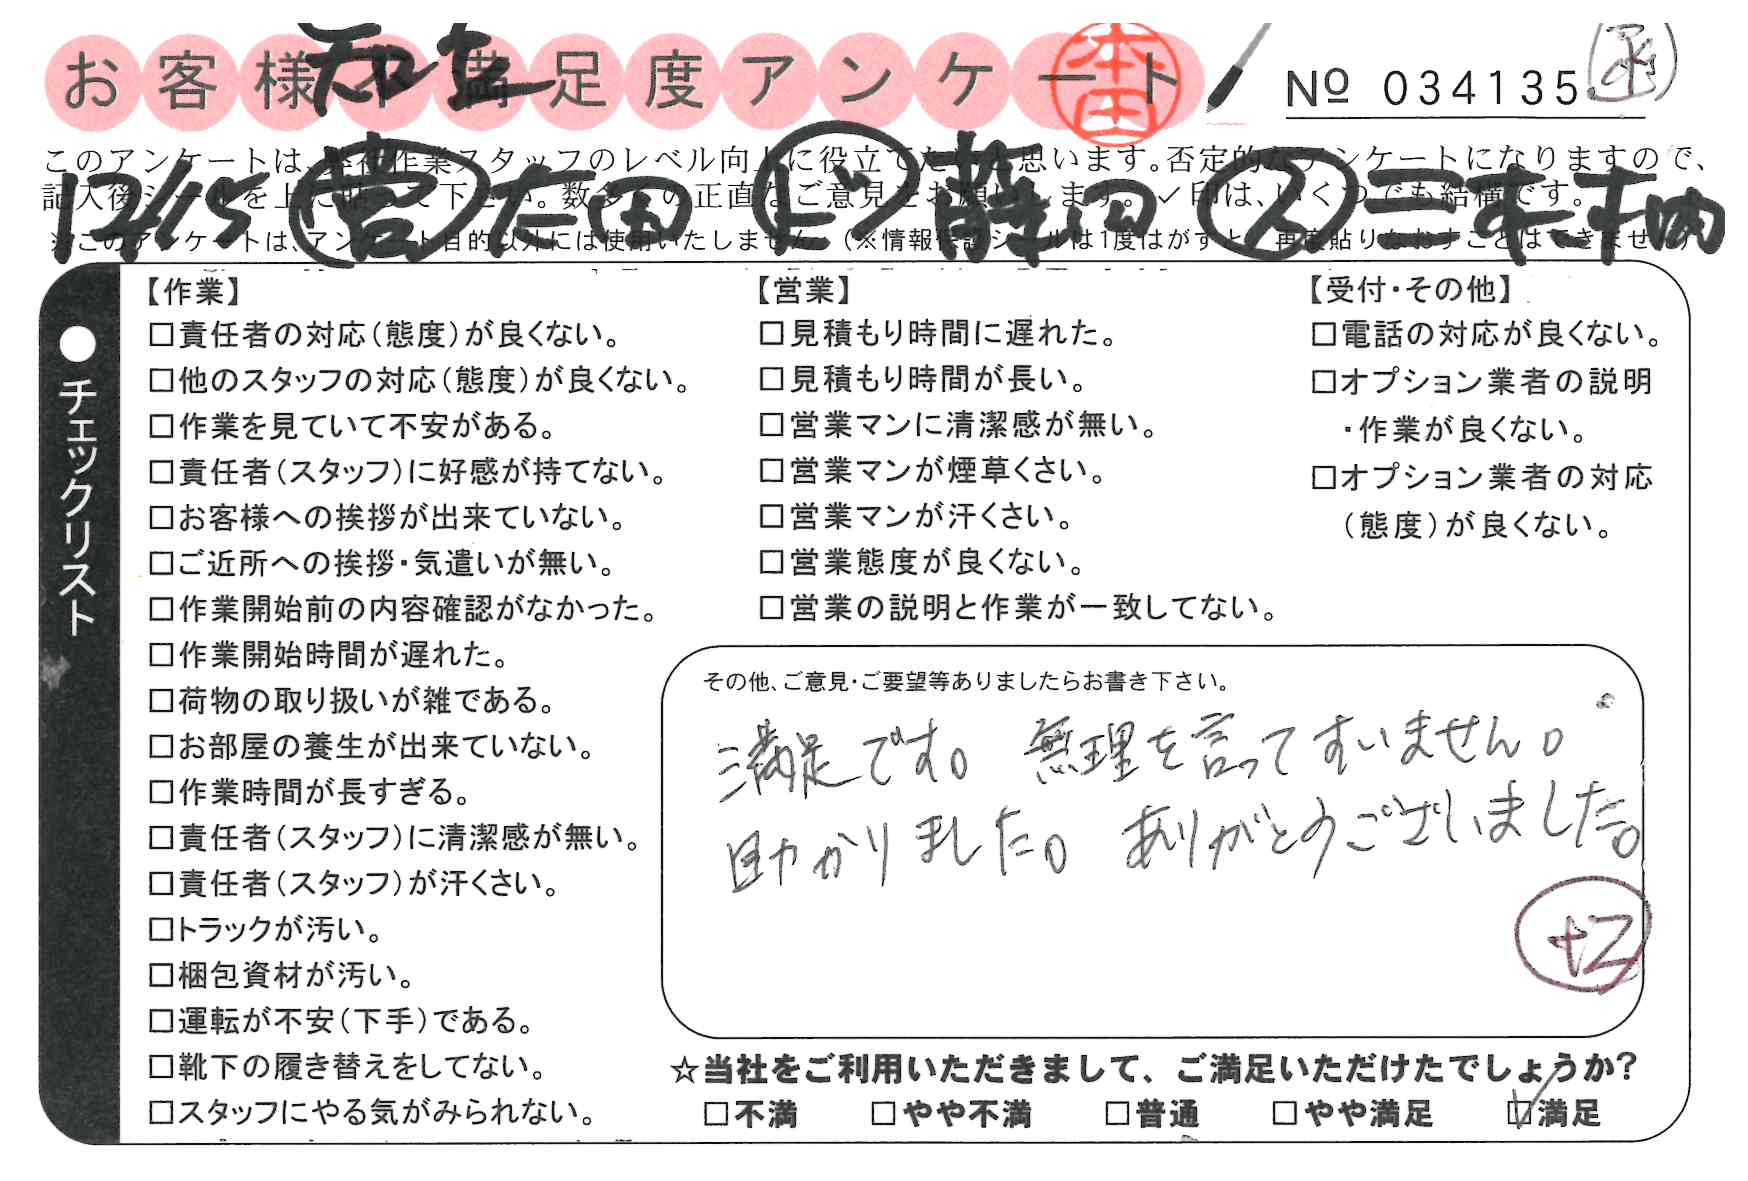 お客様不満足度アンケート
知立
本田
№ 034135
このアンケートは、弊社作業スタッフのレベル向上に役立てたいと思います。否定的なアンケートになりますので、
記入後シールを上に貼って下さい。数多くの正直なご意見をお願いします。✓印は、いくつでも結構です。
※このアンケートは、アンケート目的以外には使用いたしません。(※情報保護シールは1度はがすと、再度貼りなおすことはできません)
12/15 営 左田 ド 藤田 ス 三本柳
●チェックリスト
【作業】
□責任者の対応(態度)が良くない。
□他のスタッフの対応(態度)が良くない。
□作業を見ていて不安がある。
□責任者(スタッフ)に好感が持てない。
□お客様への挨拶が出来ていない。
□ご近所への挨拶・気遣いが無い。
□作業開始前の内容確認がなかった。
□作業開始時間が遅れた。
□荷物の取り扱いが雑である。
□お部屋の養生が出来ていない。
□作業時間が長すぎる。
□責任者(スタッフ)に清潔感が無い。
□責任者(スタッフ)が汗くさい。
□トラックが汚い。
□梱包資材が汚い。
□運転が不安(下手)である。
□靴下の履き替えをしてない。
□スタッフにやる気がみられない。
【営業】
□見積もり時間に遅れた。
□見積もり時間が長い。
□営業マンに清潔感が無い。
□営業マンが煙草くさい。
□営業マンが汗くさい。
□営業態度が良くない。
□営業の説明と作業が一致してない。
【受付・その他】
□電話の対応が良くない。
□オプション業者の説明
・作業が良くない。
□オプション業者の対応
(態度)が良くない。
その他、ご意見・ご要望等ありましたらお書き下さい。
満足です。無理を言ってすいません。
助かりました。ありがとうございました。
+2
☆当社をご利用いただきまして、ご満足いただけたでしょうか?
□不満 □やや不満 □普通 □やや満足 ☑満足